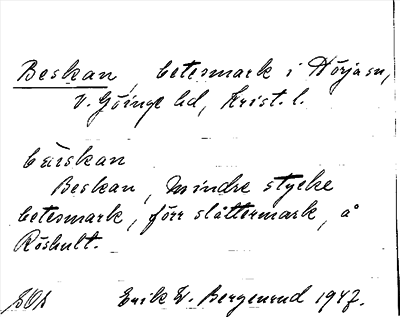 Beskan, betesmark i Hörja sn,
V. Göinge hd, Krist. l.
bæskan
Beskan, mindre stycke
betesmark, förr slåttermark, å
Röshult.
Erik W. Bergenrud 1947.